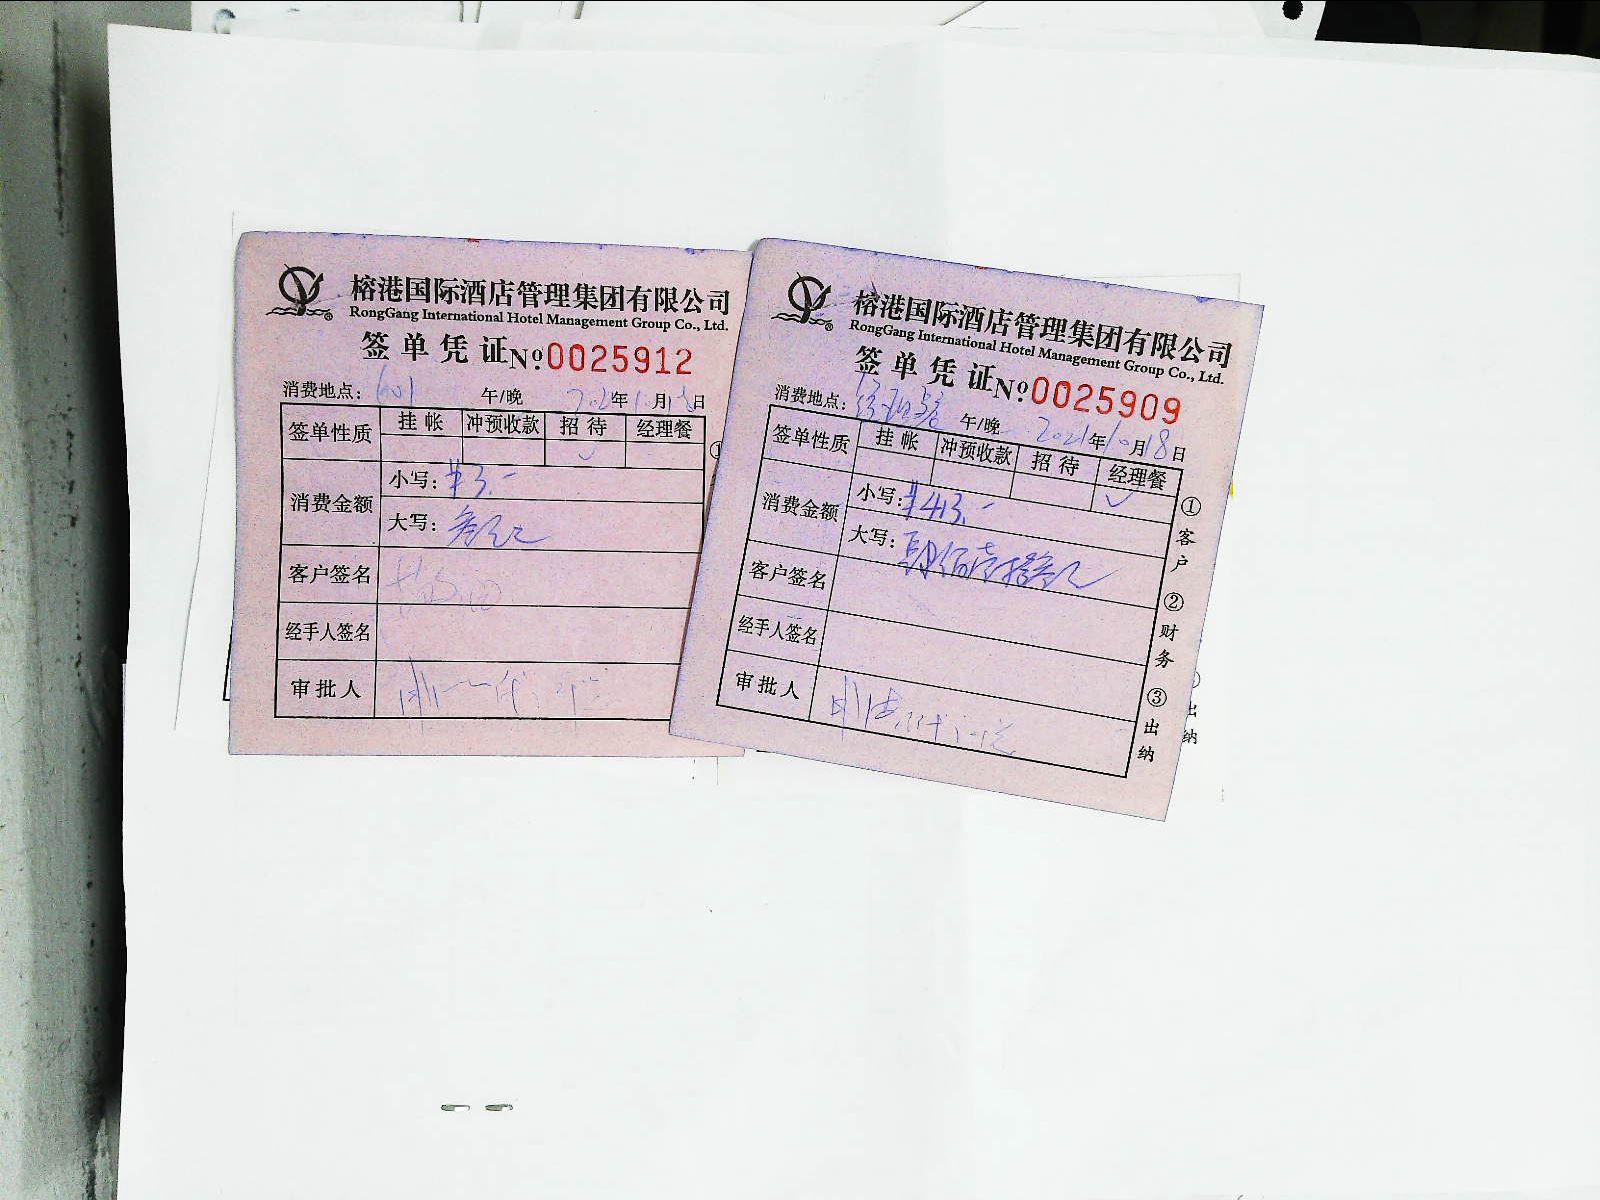 榕港国际酒店管理集团有限公司
RongGang International Hotel Management Group Co., Ltd.
签单凭证№:0025912
消费地点: 601 午/晚 2021年10月18日
签单性质 挂帐 冲预收款 招待 经理餐
✓
消费金额 小写: ¥3.-
大写: 叁元
客户签名
经手人签名
审批人
①
榕港国际酒店管理集团有限公司
RongGang International Hotel Management Group Co., Ltd.
签单凭证№:0025909
消费地点: 午/晚 2021年10月18日
签单性质 挂帐 冲预收款 招待 经理餐
✓
消费金额 小写: ¥413.-
大写: 肆佰壹拾叁元
客户签名
经手人签名
审批人
①客户 ②财务 ③出纳
出纳